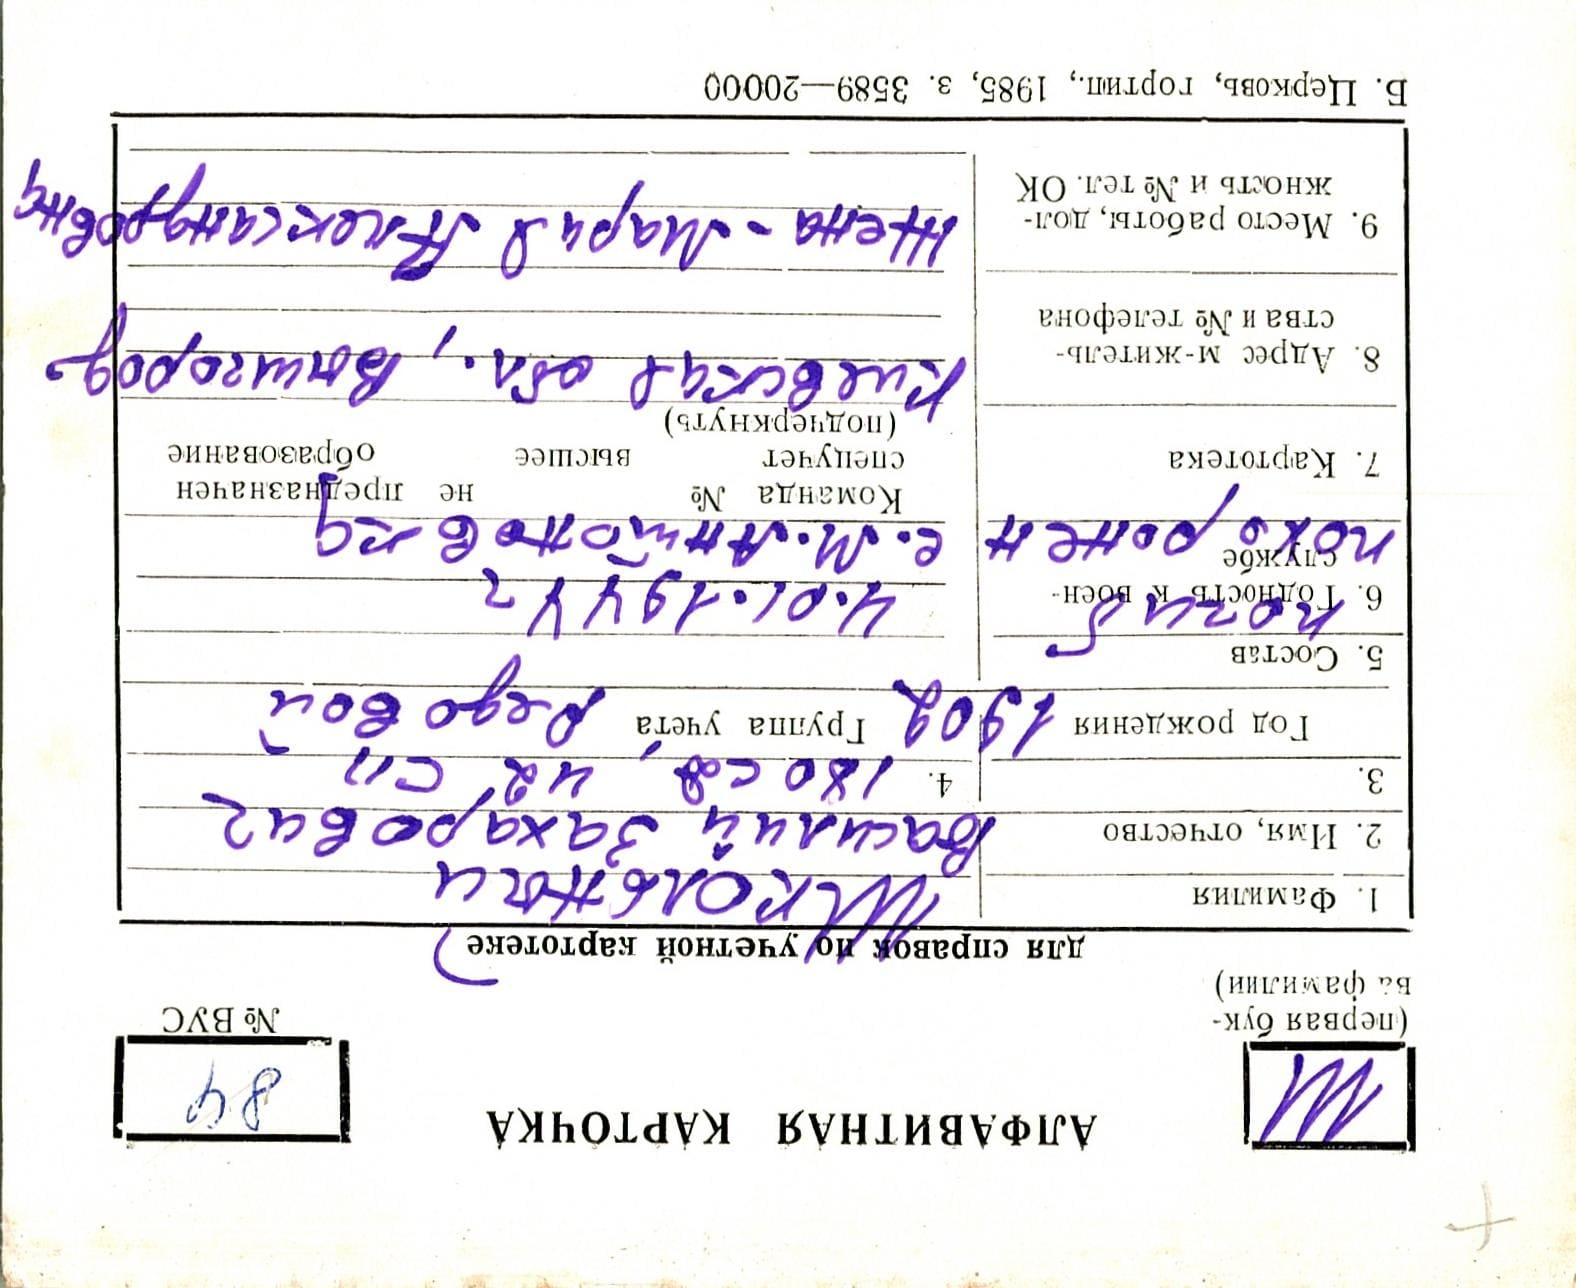 АЛФАВИТНАЯ КАРТОЧКА
Ш
84
(первая бук-
ва фамилии)
№ ВУС
для справок по учетной картотеке
1. Фамилия
2. Имя, отчество Василий Захарович
3. 4. 180 сд, 42 СП
Год рождения 1902 Группа учета рядовой
5. Состав
погиб 4.01.1944 г
6. Годность к воен-
службе
похоронен с. М. Антоновка
7. Картотека
Команда № не предназначен
спецучет высшее образование
(подчеркнуть)
8. Адрес м-житель-
ства и № телефона
Киевская обл., Вышгород
9. Место работы, дол-
жность и № тел. ОК
Жена - Мария Александровна
Б. Церковь, гортип., 1985, з. 3589—20000